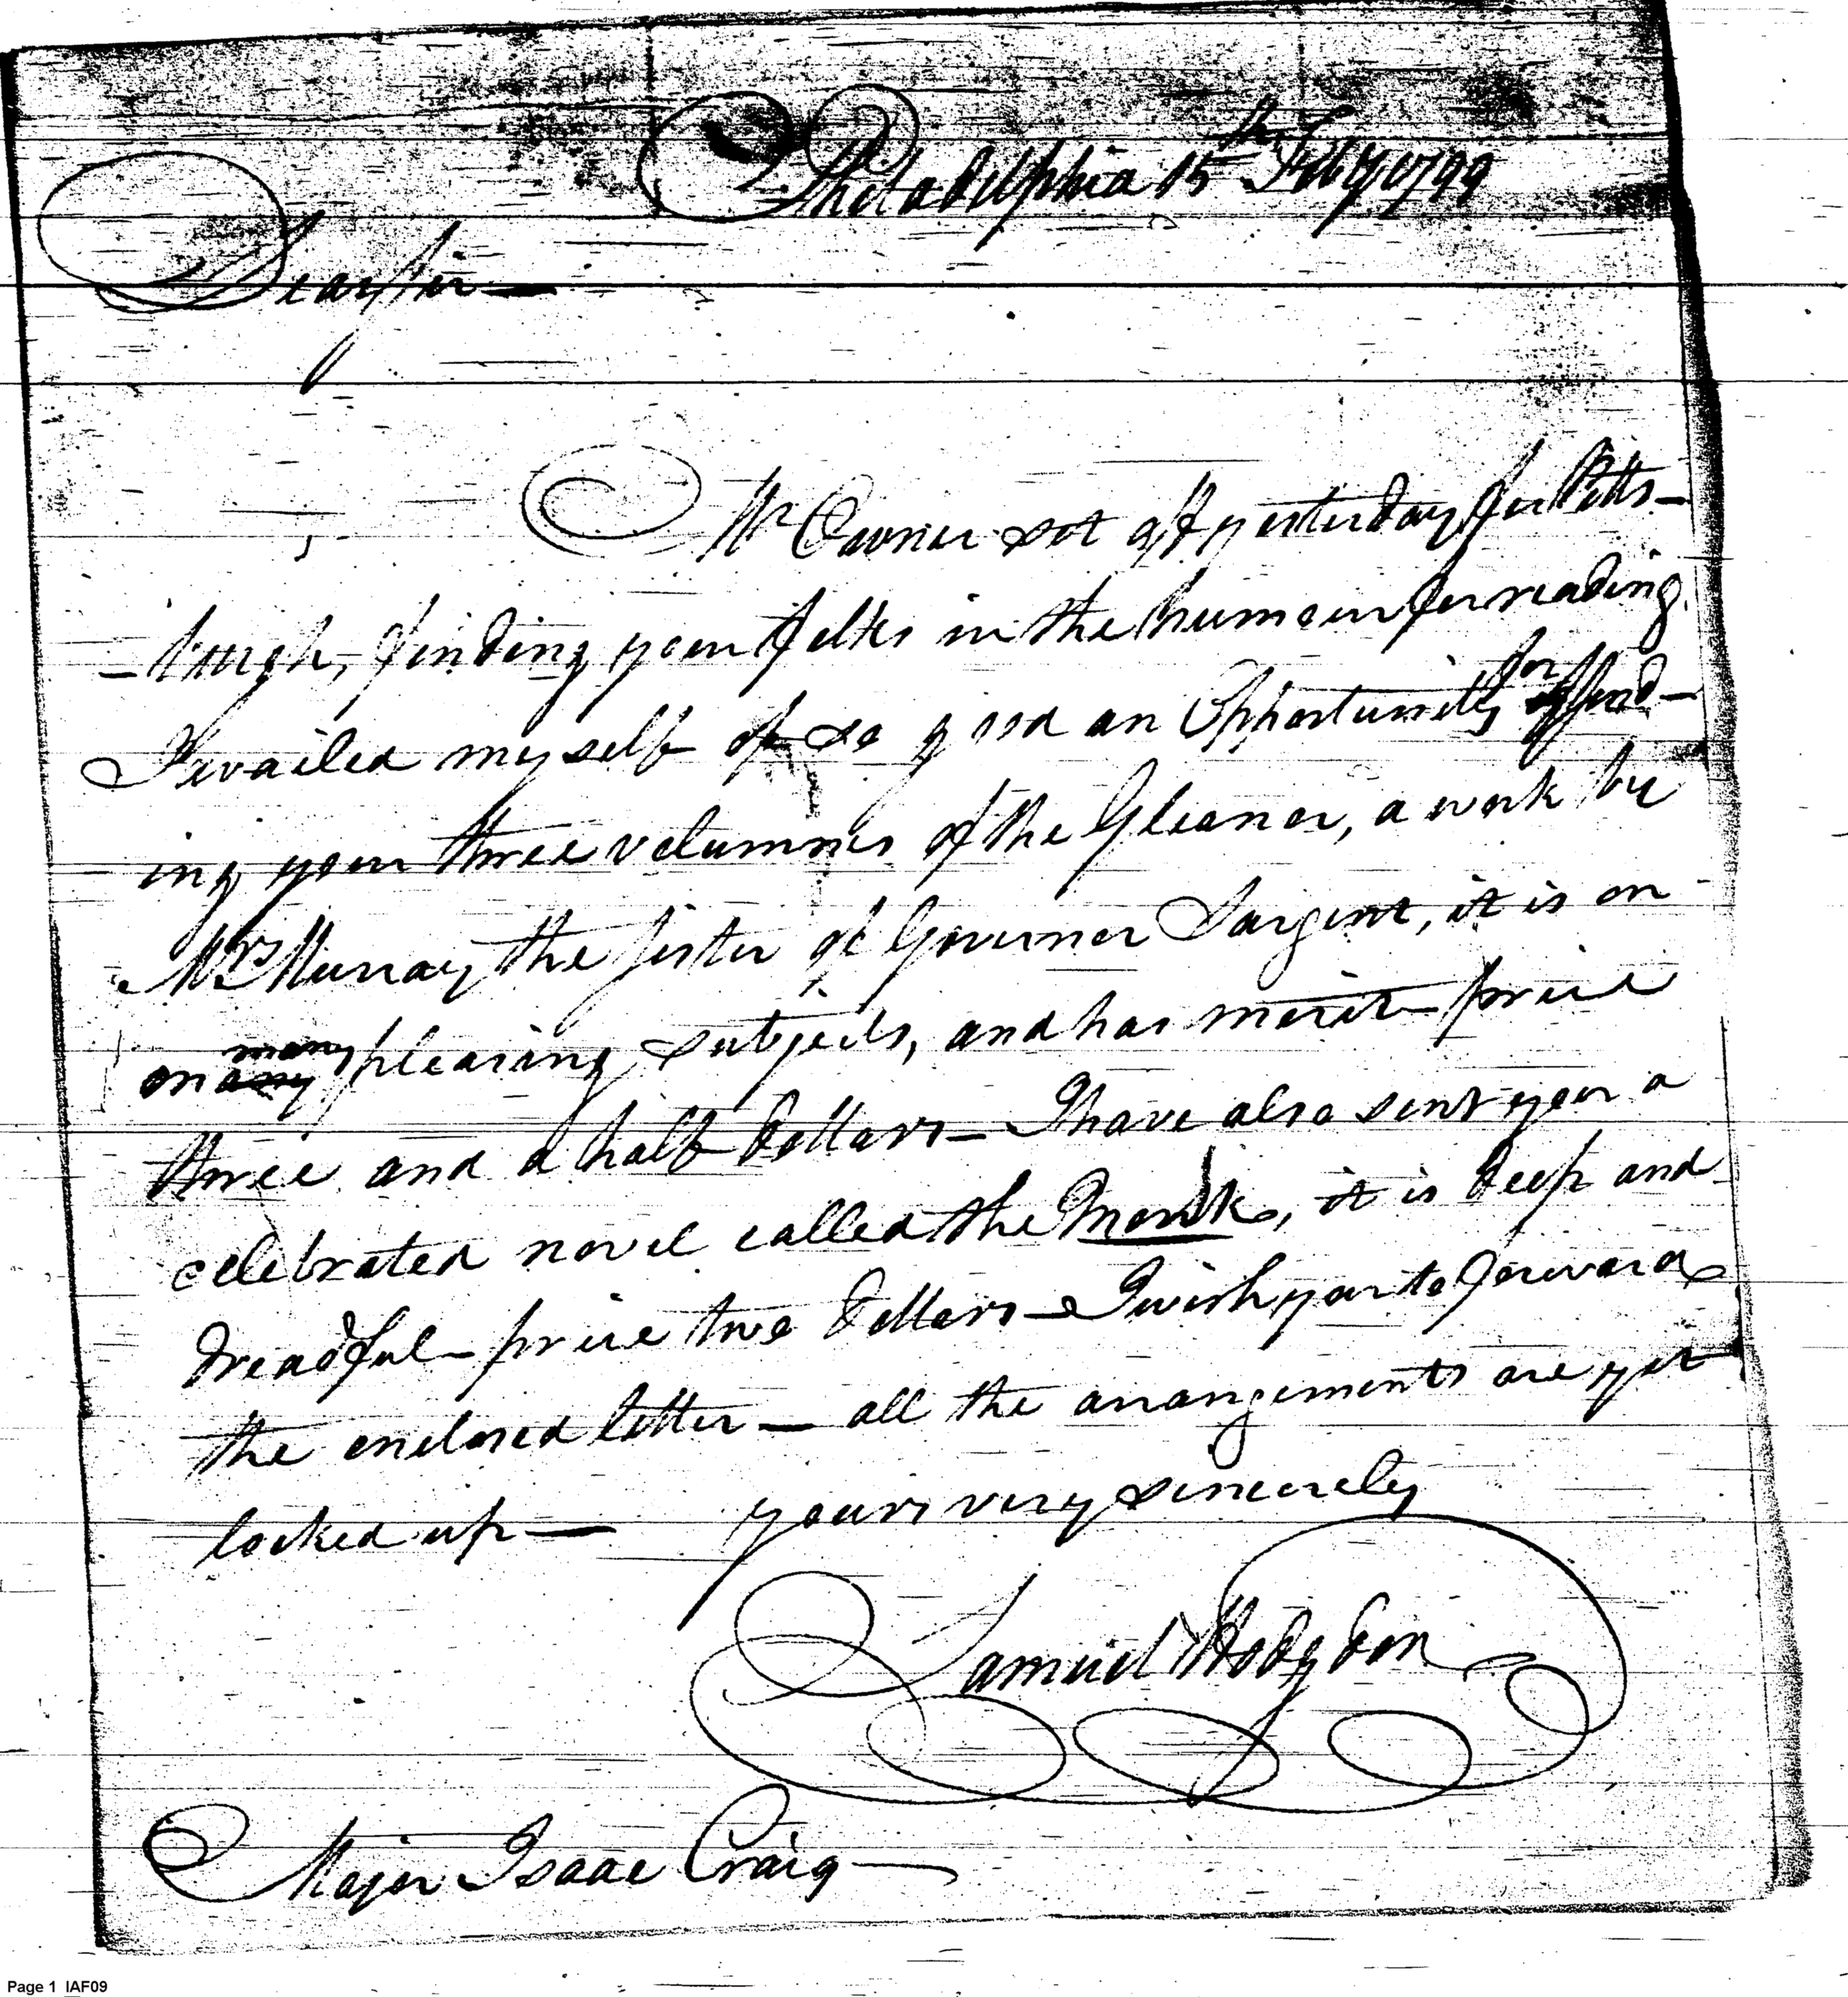 Philadelphia 15th Feby 1799
Dear Sir —
Mr set off yesterday for Pitts-
- burgh, finding your folks in the humour for reading
I availed myself of so good an Opportunity for send-
ing your three volumnes of the Gleaner, a work by
Mrs Murray the sister of Governor Sargent, it is on
on many pleasing subjects, and has merit - price
three and a half dollars — I have also sent your a
celebrated novel called the Monk, it is deep and
dreadful - price two dollars — I wish you to forward
the enclosed letter — all the arrangements are yet
locked up — yours very sincerely
Samuel Hodgdon
Major Isaac Craig —
Page 1 IAF09